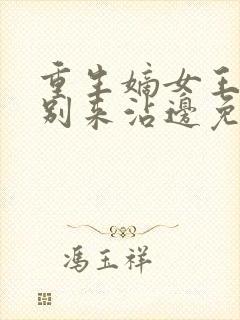 重生嫡女王
别来沾邊免
馮玉祥